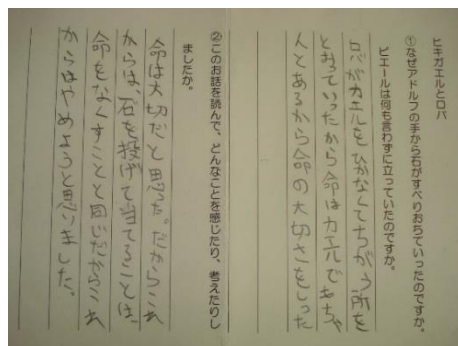 ヒキガエルとロバ
①なぜアドルフの手から石がすべりおちていったのですか。
ピエールは何も言わずに立っていたのですか。
ロバがカエルをひかなくてちがう所を
とおっていったから命はカエルでもちゃ
んとあるから命の大切さをしった
②このお話を読んで、どんなことを感じたり、考えたりし
ましたか。
命は大切だと思った。だからこれ
からは、石を投げて当てることは、
命をなくすことと同じだからこれ
からはやめようと思いました。